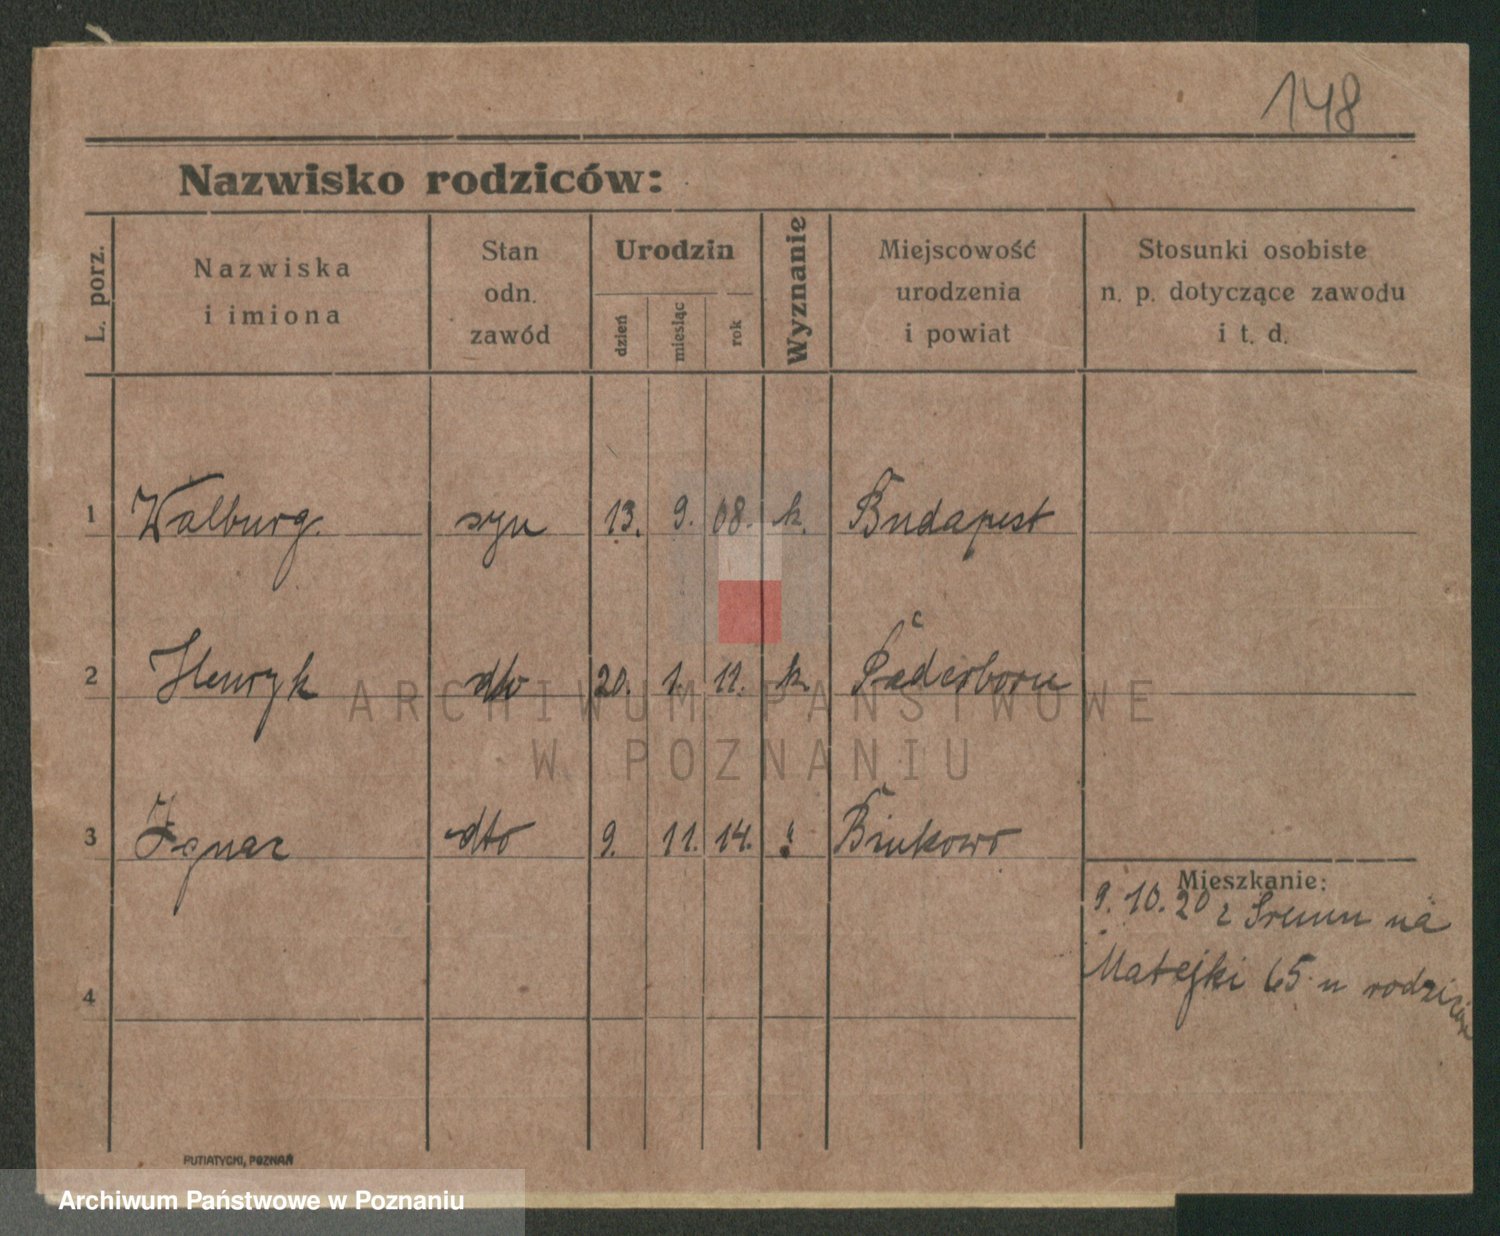 148
Nazwisko rodziców:
L. porz.
Nazwiska
i imiona
Stan
odn.
zawód
Urodzin
dzień
miesiąc
rok
Wyznanie
Miejscowość
urodzenia
i powiat
Stosunki osobiste
n. p. dotyczące zawodu
i t. d.
1 Walburg. syn 13. 9. 08. k. Budapest
2 Henryk dto 20. 1. 11. k. Paderborn
3 Ignac dto 9. 11. 14. " Binkowo
Mieszkanie:
9. 10. 20 z Śremu na
Matejki 65 u rodziców
4
ARCHIWUM PAŃSTWOWE
W POZNANIU
PUTIATYCKI, POZNAŃ
Archiwum Państwowe w Poznaniu